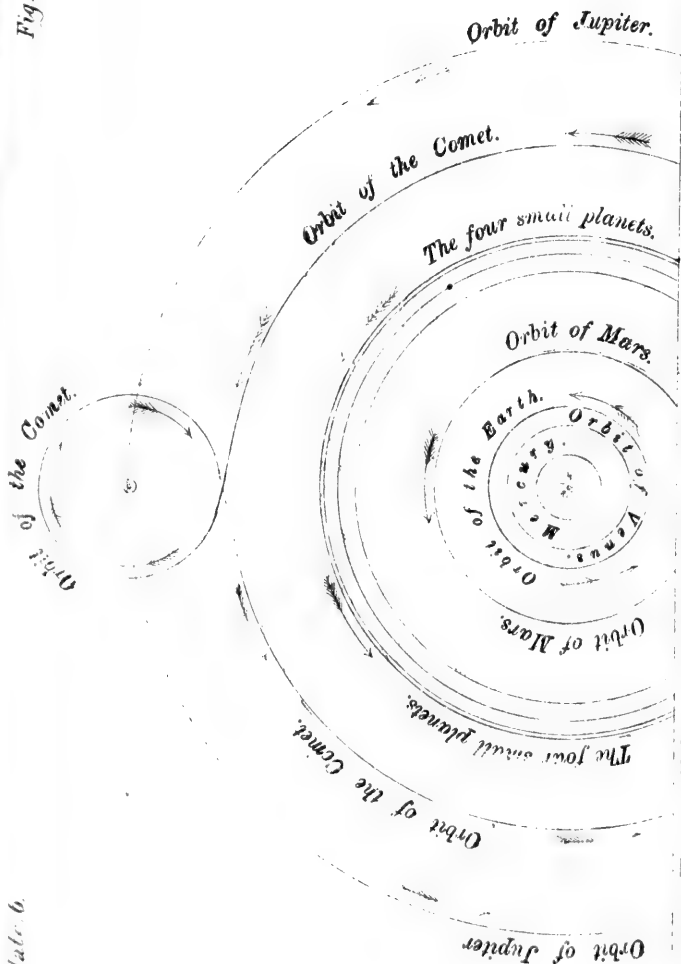 Fig.
Orbit of Jupiter.
Orbit of the Comet.
The four small planets.
Orbit of Mars.
Orbit of the Earth.
Orbit of Venus.
Mercury.
Orbit of the Comet.
Orbit of Mars.
The four small planets.
Orbit of the Comet.
Orbit of Jupiter
6.